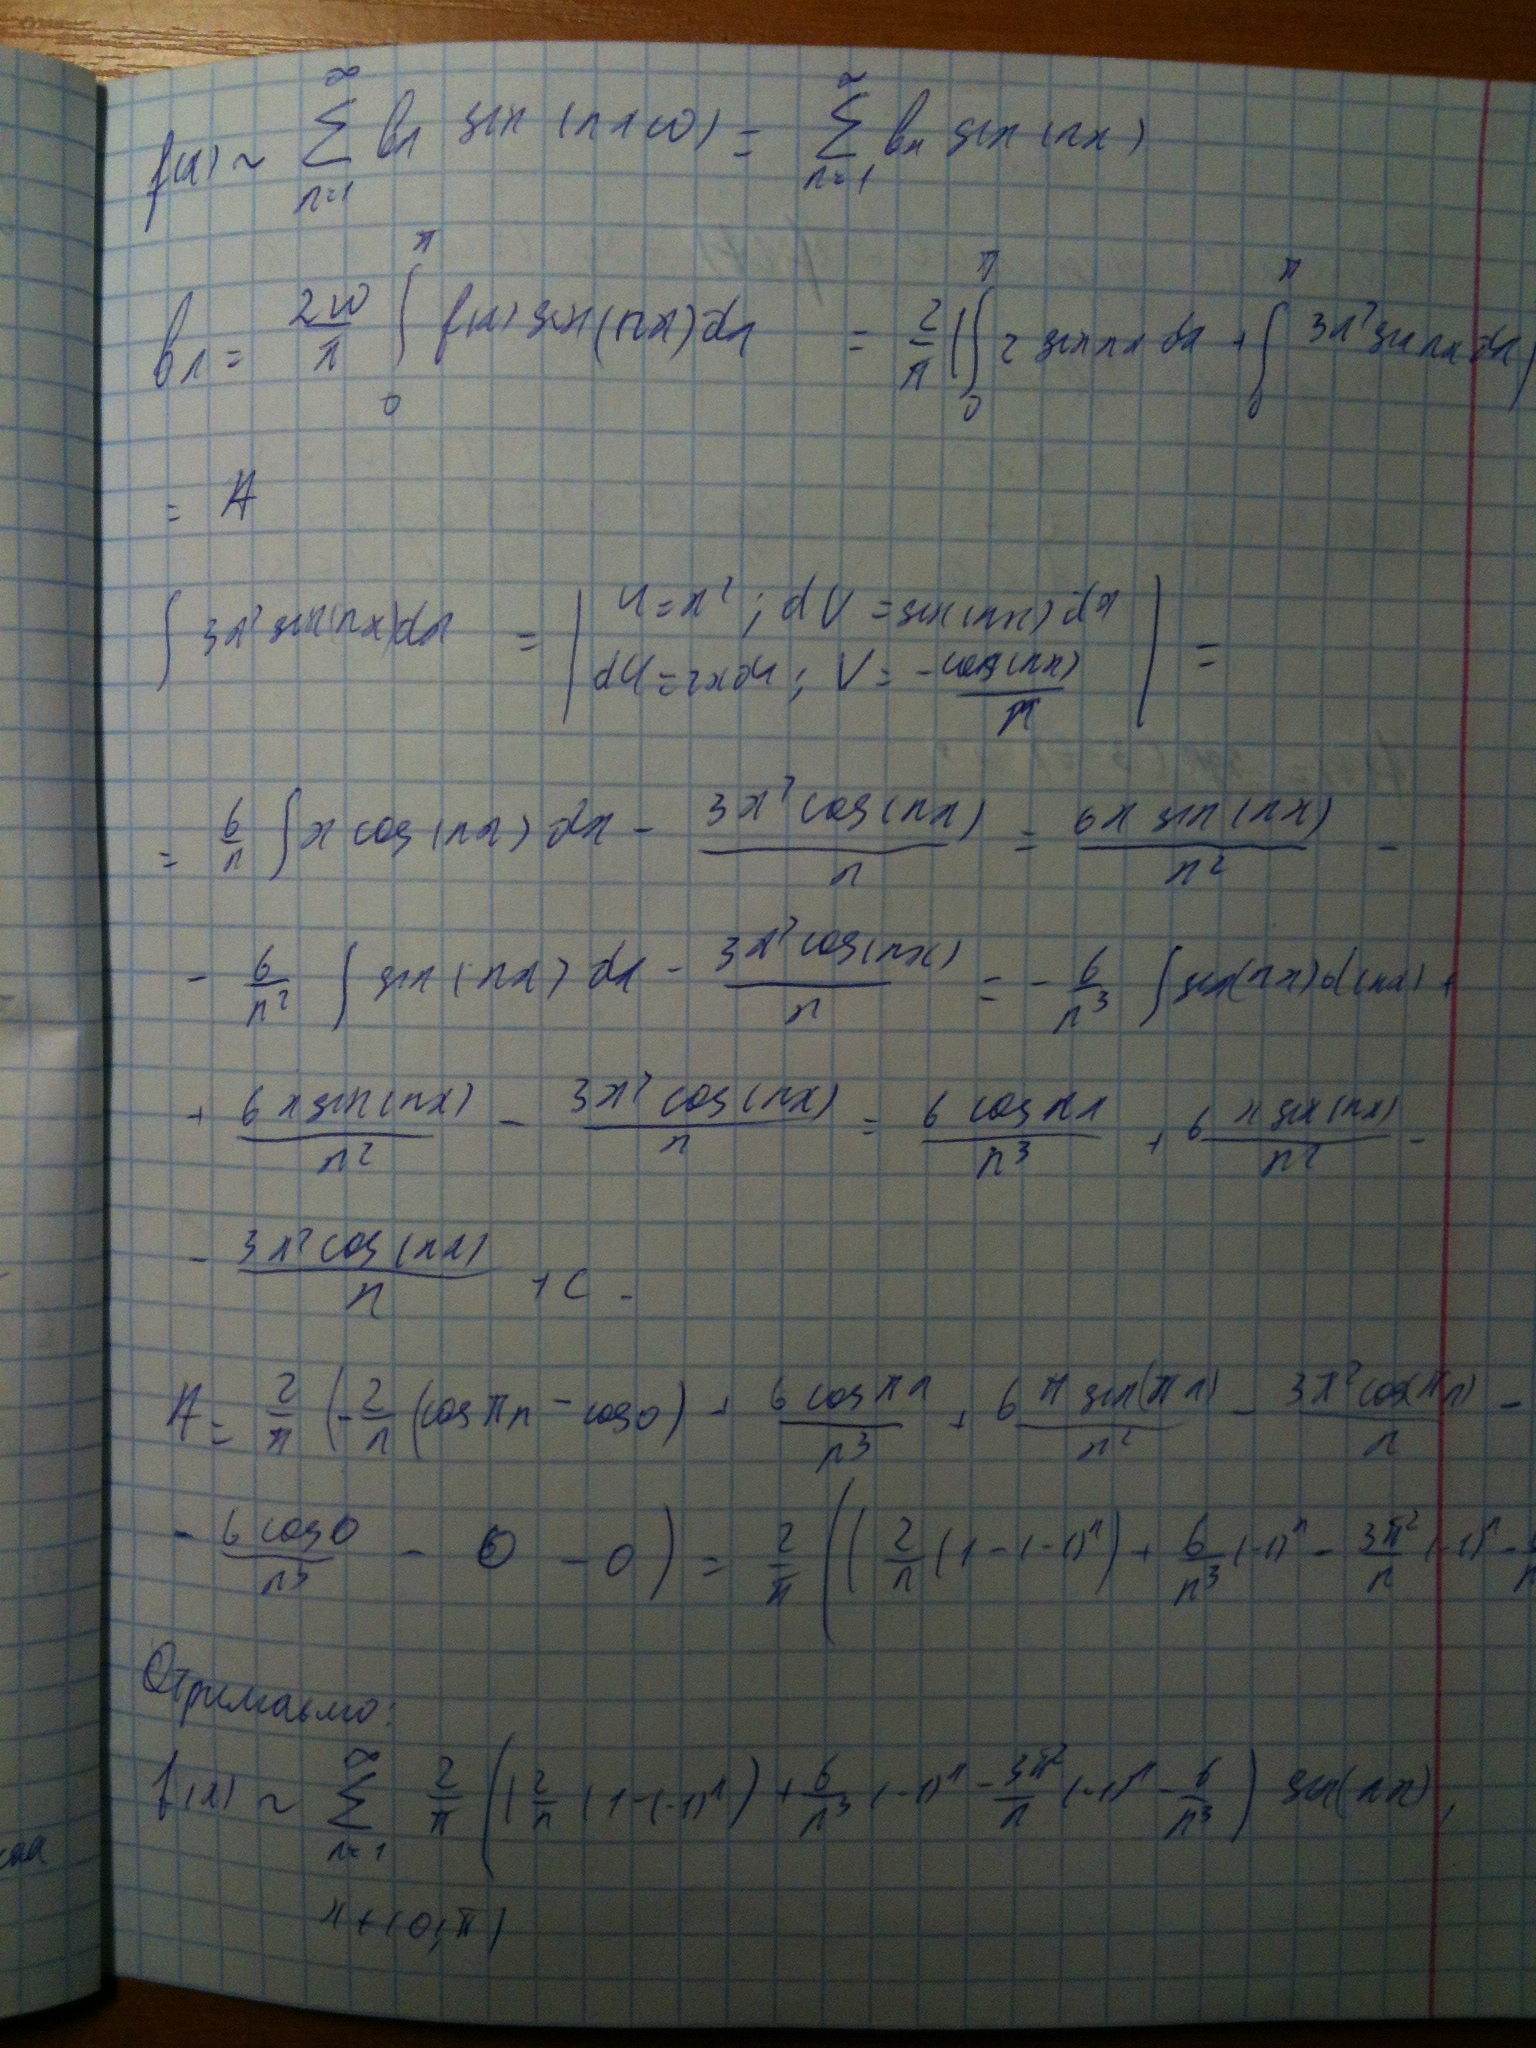 f(x) ~ ∑_{n=1}^{∞} bₙ sin (nxω) = ∑_{n=1}^{∞} bₙ sin (nx)
bₙ = 2ω/π ∫_0^π f(x) sin(nx) dx = 2/π (∫_0^π 2 sin nx dx + ∫_0^π 3x² sin nx dx)
= A
∫ 3x² sin(nx) dx = | u = x² ; dV = sin(nx) dx
du = 2x du ; V = -cos(nx)/n | =
= 6/n ∫ x cos(nx) dx - 3x² cos(nx)/n = 6x sin(nx)/n² -
- 6/n² ∫ sin(nx) dx - 3x² cos(nx)/n = - 6/n³ ∫ sin(nx) d(nx) +
+ 6x sin(nx)/n² - 3x² cos(nx)/n = 6 cos nx/n³ + 6 x sin(nx)/n² -
- 3x² cos(nx)/n + C.
A = 2/π (-2/n (cos πn - cos 0) + 6 cos πn/n³ + 6 π sin(πn)/n² - 3π² cos(πn)/n -
- 6 cos 0/n³ - 0 - 0) = 2/π ((2/n (1 - (-1)ⁿ) + 6/n³ (-1)ⁿ - 3π²/n (-1)ⁿ -
Отримаємо:
f(x) ~ ∑_{n=1}^{∞} 2/π ((2/n (1-(-1)ⁿ) + 6/n³ (-1)ⁿ - 3π²/n (-1)ⁿ - 6/n³) sin(nx),
x ∈ (0; π)